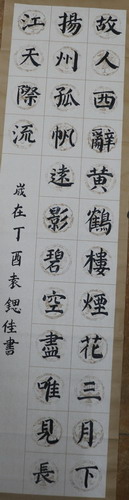 故人西辭黃鶴樓煙花三月下
揚州孤帆遠影碧空盡唯見長
江天際流
歲在丁酉袁鍶佳書